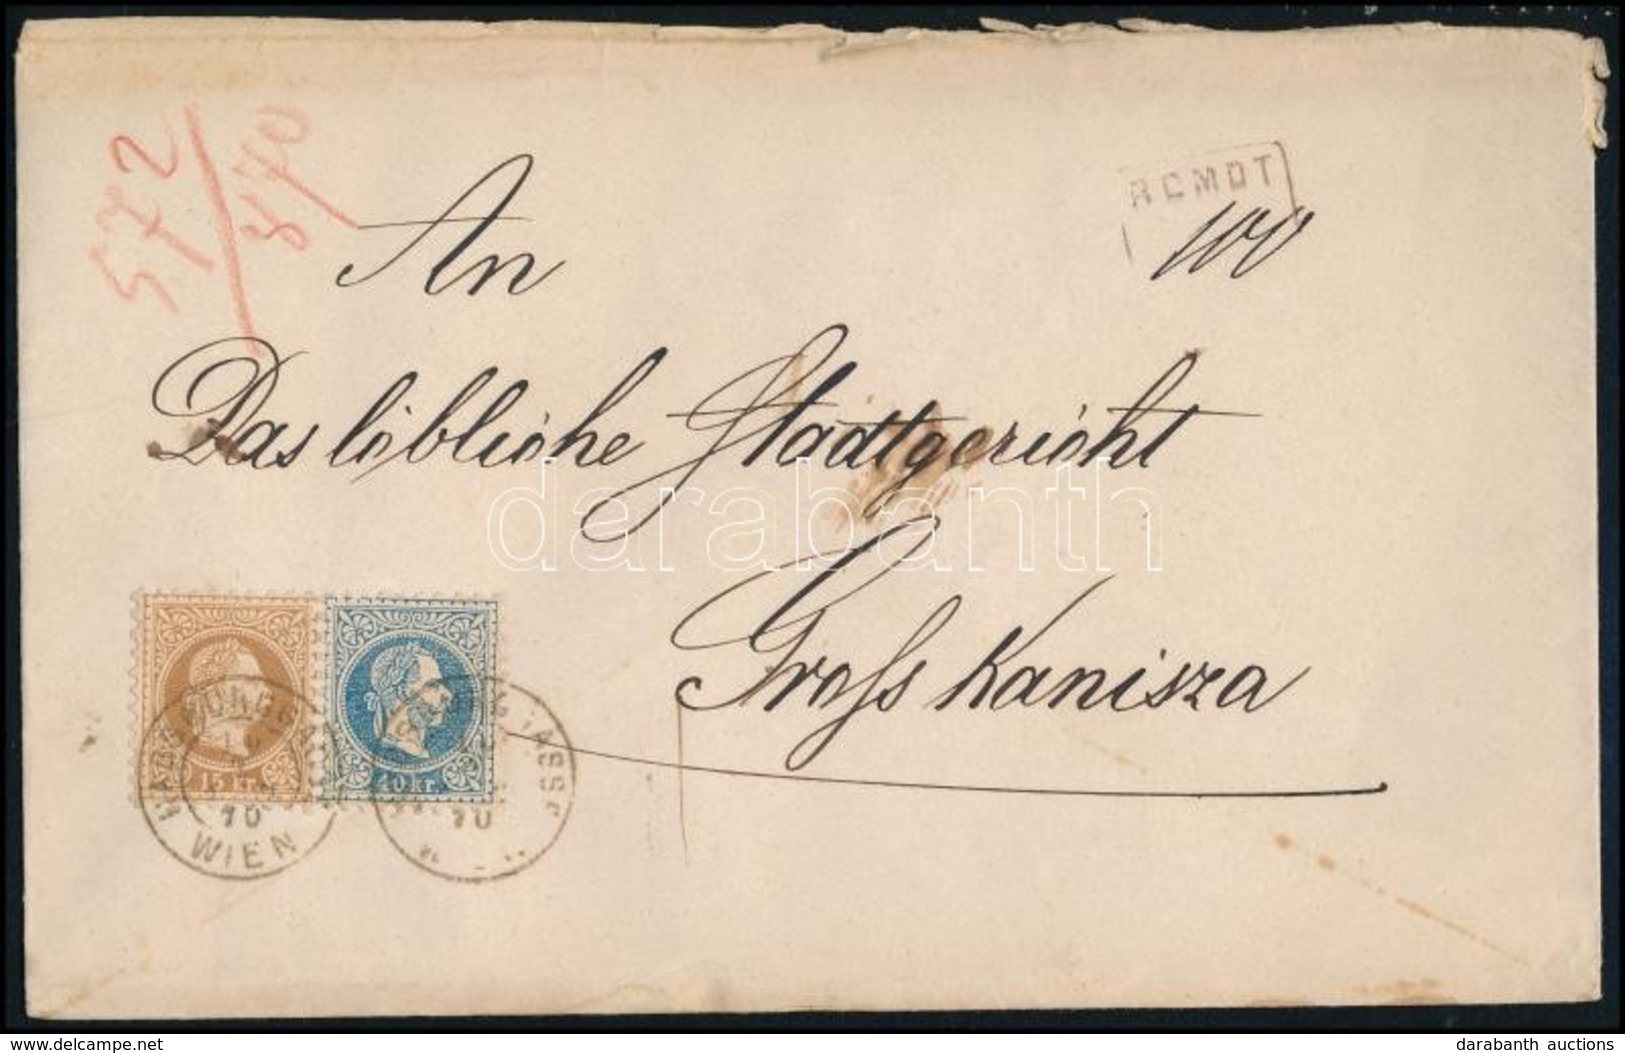 572/870
RCMDT
100
An
Das löbliche Stadtgericht
Gross Kanisza
15 Kr.
10 kr.
70
WIEN
70
darabanth
www.delcampe.net
darabanth auctions